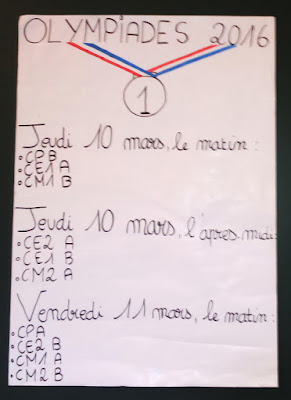 OLYMPIADES 2016
1
Jeudi 10 mars, le matin :
• CPB
• CE1 A
• CM1 B
Jeudi 10 mars, l'après-midi:
• CE2 A
• CE1 B
• CM2 A
Vendredi 11 mars, le matin :
• CPA
• CE2 B
• CM1 A
• CM2 B